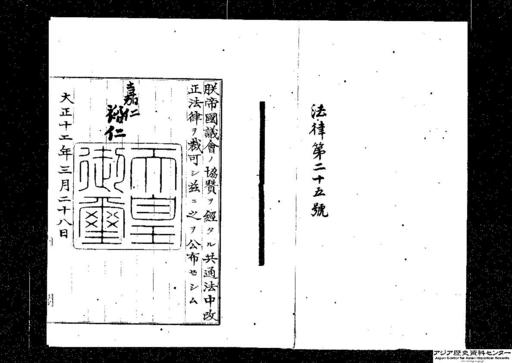 法律第二十五號
朕帝國議會ノ協贊ヲ經タル共通法中改
正法律ヲ裁可シ茲ニ之ヲ公布セシム
嘉仁
裕仁
天皇
御璽
大正十二年三月二十八日
アジア歴史資料センター
Japan Center for Asian Historical Records